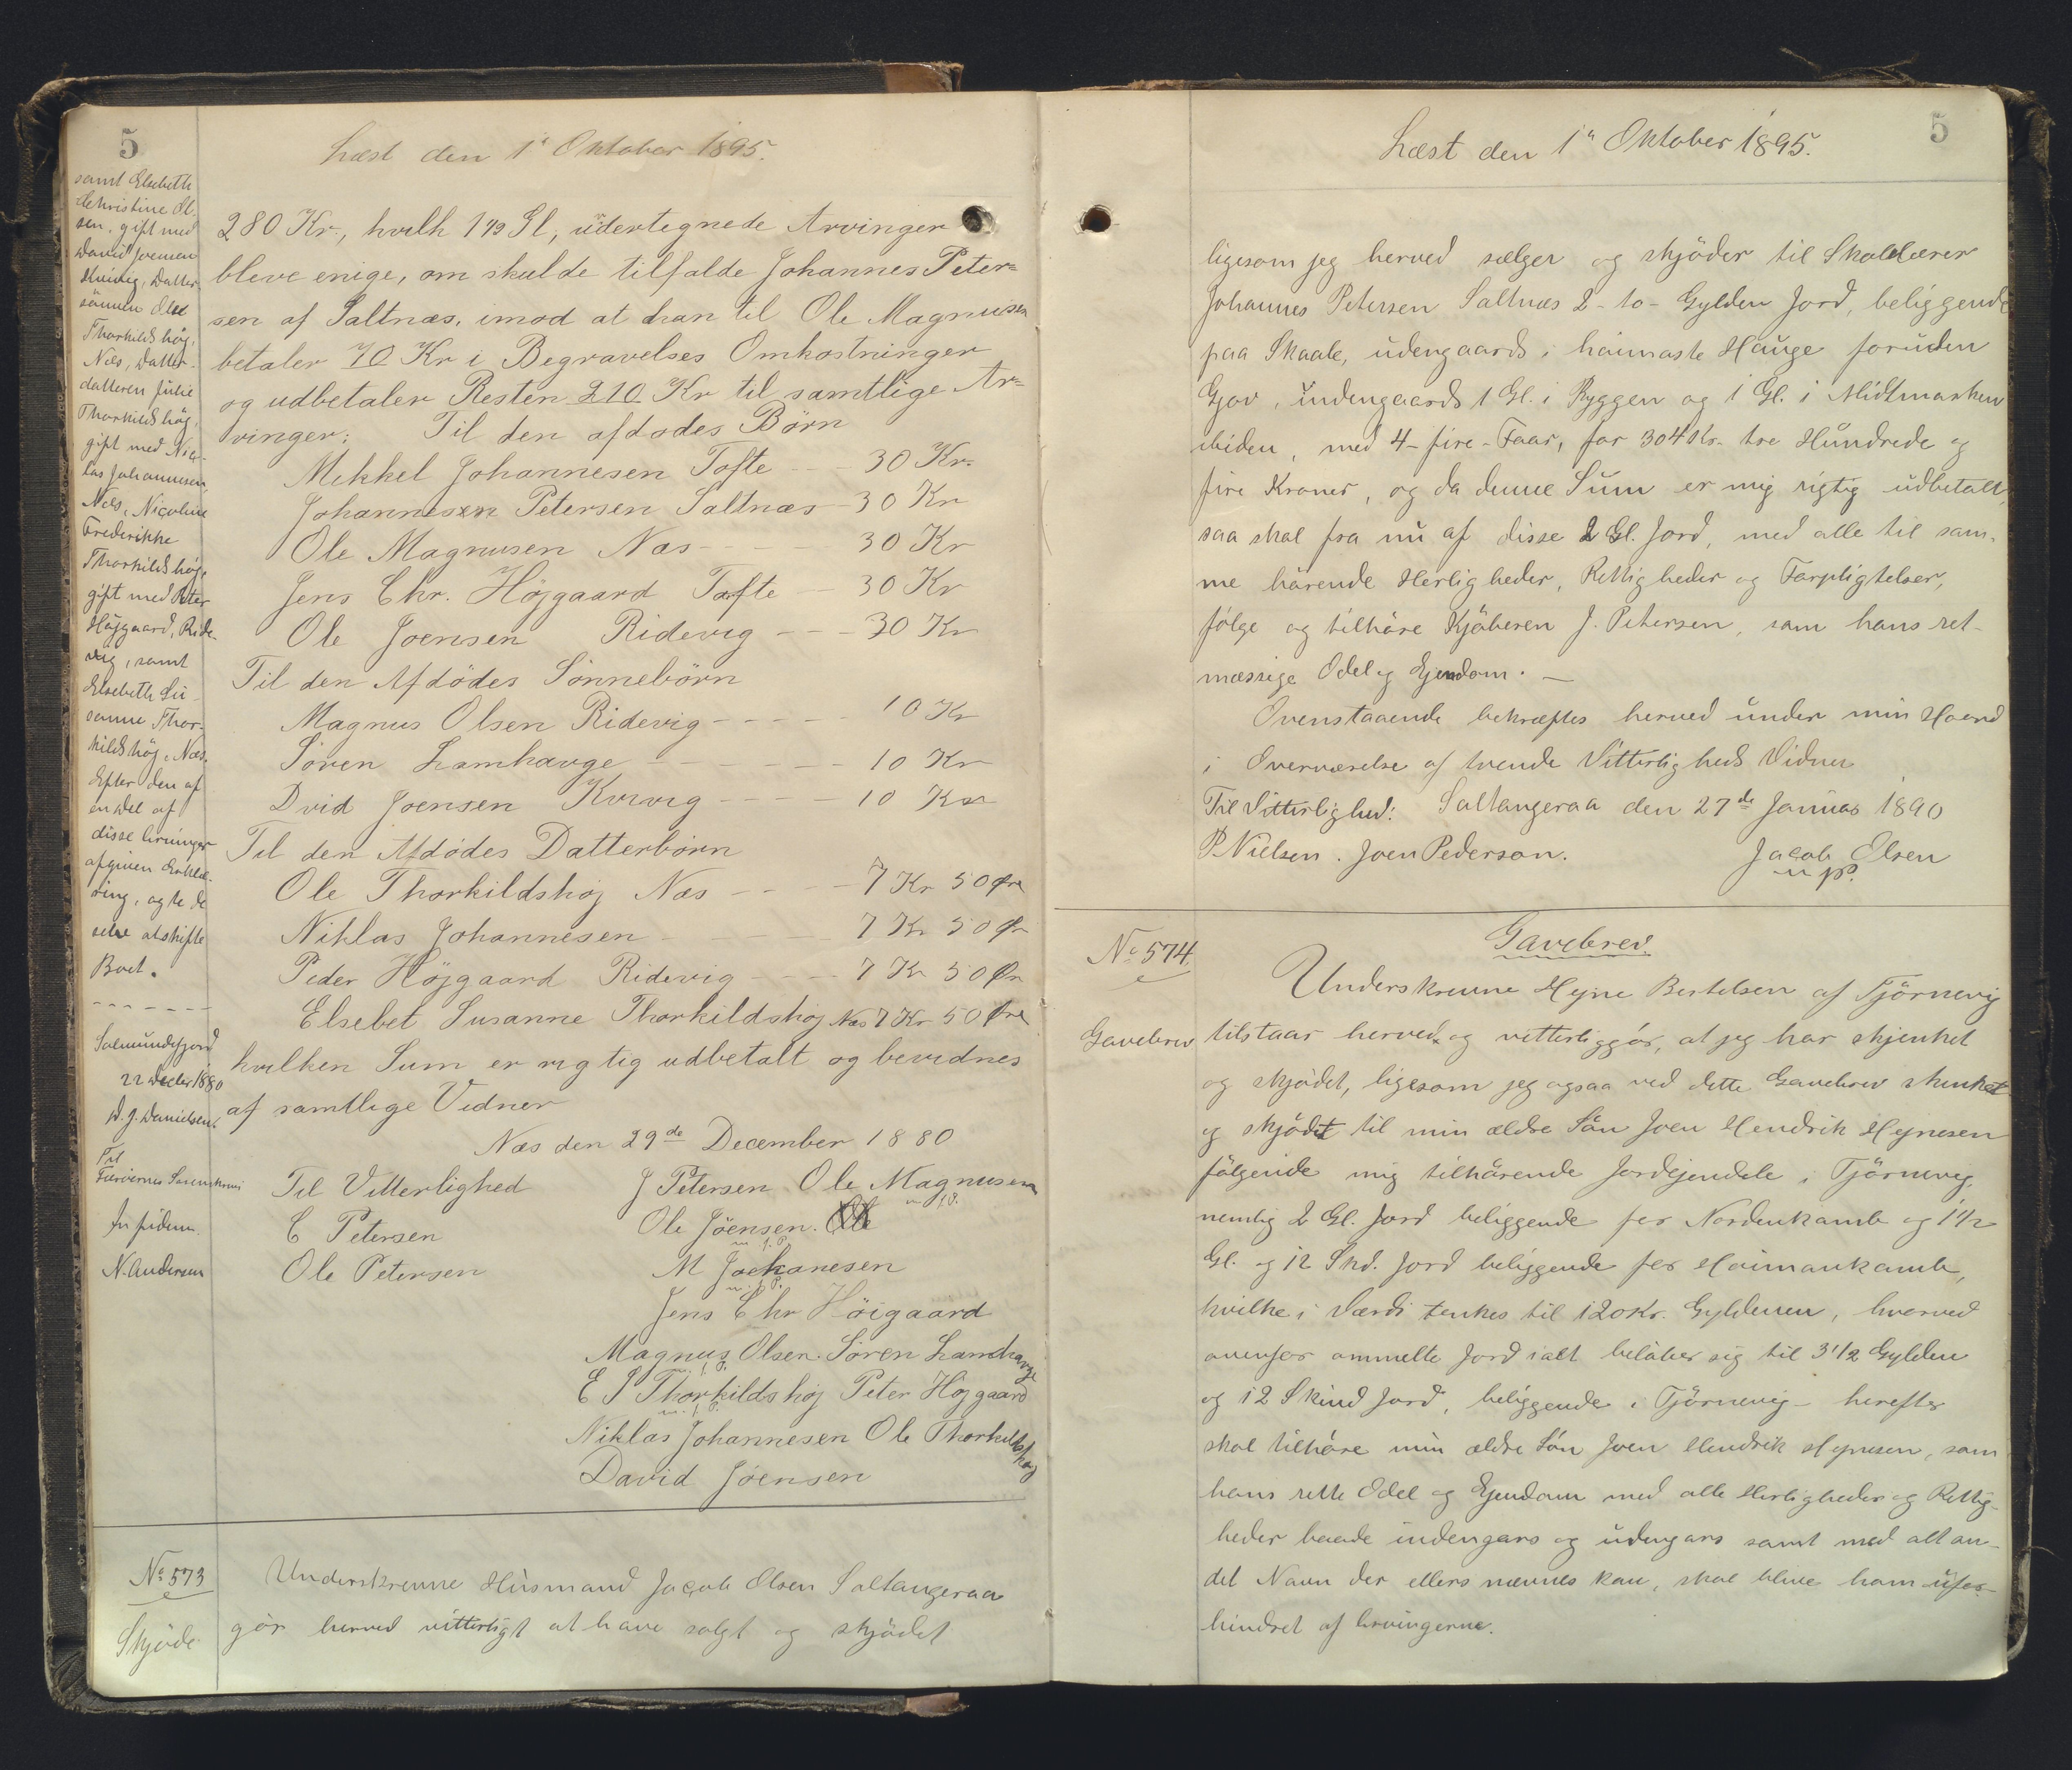 5
Læst den 1ͭ Oktober 1895.
samt Elsebeth
Christine Ol-
sen, gift med
David Joensen
Kvivig, Datter-
sönnen Ole
Thorkildshöj,
Næs, Datter-
datteren Julie
Thorkildshöj,
gift med Nic-
las Johannesen,
Næs, Nicoline
Frederikke
Thorkildshöj,
gift med Peter
Höjgaard, Ride-
vig, samt
Elsebeth Su-
sanne Thor-
kildshöj, Næs.
Efter den af
en Del af
disse Arvinger
afgiven Erklæ-
ring, agte de
selv at skifte
Boet.
Salmundefjord
22 Decbr 1880
D. J. Danielsen.
Til
Færöernes Sorenskriveri
In fidem
N. Andersen
280 Kr, hvilk 1 1/2 Gl, undertegnede Arvinger
bleve enige, om skulde tilfalde Johannes Peter=
sen af Saltnæs, imod at han til Ole Magnusen
betaler 70 Kr i Begravelses Omkostninger
og udbetaler Resten 210 Kr til samtlige Ar=
vinger: Til den afdodes Börn
Mikkel Johannesen Tofte - - 30 Kr.
Johannesen Petersen Saltnæs - 30 Kr
Ole Magnusen Næs - - - - 30 Kr
Jens Chr. Höjgaard Tofte - 30 Kr
Ole Joensen Ridevig - - - 30 Kr
Til den Afdödes Sönnebörn
Magnus Olsen Ridevig - - - - - 10 Kr
Sören Lamhauge - - - - - - 10 Kr
Dvid Joensen Kvivig - - - - 10 Kr
Til den Afdödes Datterbörn
Ole Thorkildshöj Næs - - - 7 Kr 50 Øre
Niklas Johannesen - - - - 7 Kr 50 Ør
Peder Höjgaard Ridevig - - - - 7 Kr 50 Ør
Elsebet Susanne Thorkildshöj Næs 7 Kr 50 Øre
hvilken Sum er rigtig udbetalt og bevidnes
af samtlige Vidner
Næs den 29de December 1880
Til Vitterlighed J Petersen Ole Magnusen
m. f. P.
C Petersen Ole Jöensen. Ole
m. f. P.
Ole Petersen M Joehanesen
m. f. P.
Jens Chr Höigaard
Magnus Olsen. Sören Lamhauge
m. f. P.
E S Thorkildshöj Peter Hojgaard
m. f. P.
Niklas Johannesen Ole Thorkildshöj
David Jóensen
No 573
Skjöde
Underskrevne Husmand Jacob Olsen Saltangeraa
gör herved vitterligt at have solgt og skjödet
5
Læst den 1ͭ Oktober 1895.
ligesom jeg herved sælger og skjöder til Skolelærer
Johannes Petersen Saltnæs 2 - to - Gylden Jord, beliggende
paa Skaale, udengaards i haimaste Hauge foruden
Gjov, indengaards 1 Gl. i Ryggen og 1 Gl. i Midtmarken
ibiden, med 4 - fire - Faar, for 304 Kr. tre Hundrede og
fire Kroner, og da denne Sum er mig rigtig udbetalt,
saa skal fra nu af disse 2 Gl. Jord, med alle til sam-
me hörende Herligheder, Rettigheder og Forpligtelser,
fölge og tilhöre Kjöberen J. Petersen, som hans ret-
mæssige Odel og Ejendom. -
Ovenstaaende bekræftes herved under min Haand
i Overværelse af tvende Vitterligheds Vidner
Til Vitterlighed: Saltangeraa den 27de Januar 1890
P. Nielsen. Joen Pederson. Jacob Olsen
m p.
No 574.
Gavebrev
Gavebrev.
Underskrevne Hejne Bertelsen af Tjörnevig
tilstaar herved og vitterliggör, at jeg har skjenket
og skjödet, ligesom jeg ogsaa ved dette Gavebrev skenket
og skjödet til min ældre Sön Joen Hendrik Hejnesen
fölgende mig tilhörende Jordejendele i Tjörnevig,
nemlig 2 Gl. Jord beliggende fer Nordenkamb og 1 1/2
Gl. og 12 Skd. Jord beliggende fer Heimankamb,
hvilke i Værdi tenkes til 120 Kr. Gyldenen, hvorved
ovenfor ommelte Jord ialt belöber sig til 3 1/2 Gylden
og 12 Skind Jord, beliggende i Tjörnevig - herefter
skal tilhöre min ældre Sön Joen Hendrik Hejnesen, som
hans rette Odel og Ejendom med alle Herligheder og Rettig-
heder baade indengars og udengars samt med alt an-
det Navn der ellers nævnes kan, skal blive ham ufor-
hindret af Arvingerne.